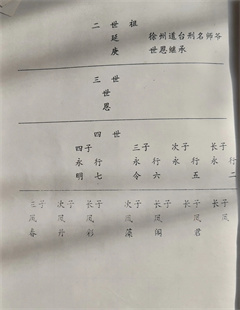 二世祖
延庚
徐州道台刑名师爷
世恩继承
三世
世恩
四世
长子
永行二
次子
永行五
三子
永行六
今
四子
永行七
明
长子 凤
长子 凤君
长子 凤阁
次子 凤藻
长子 凤彩
次子 凤丹
三子 凤春